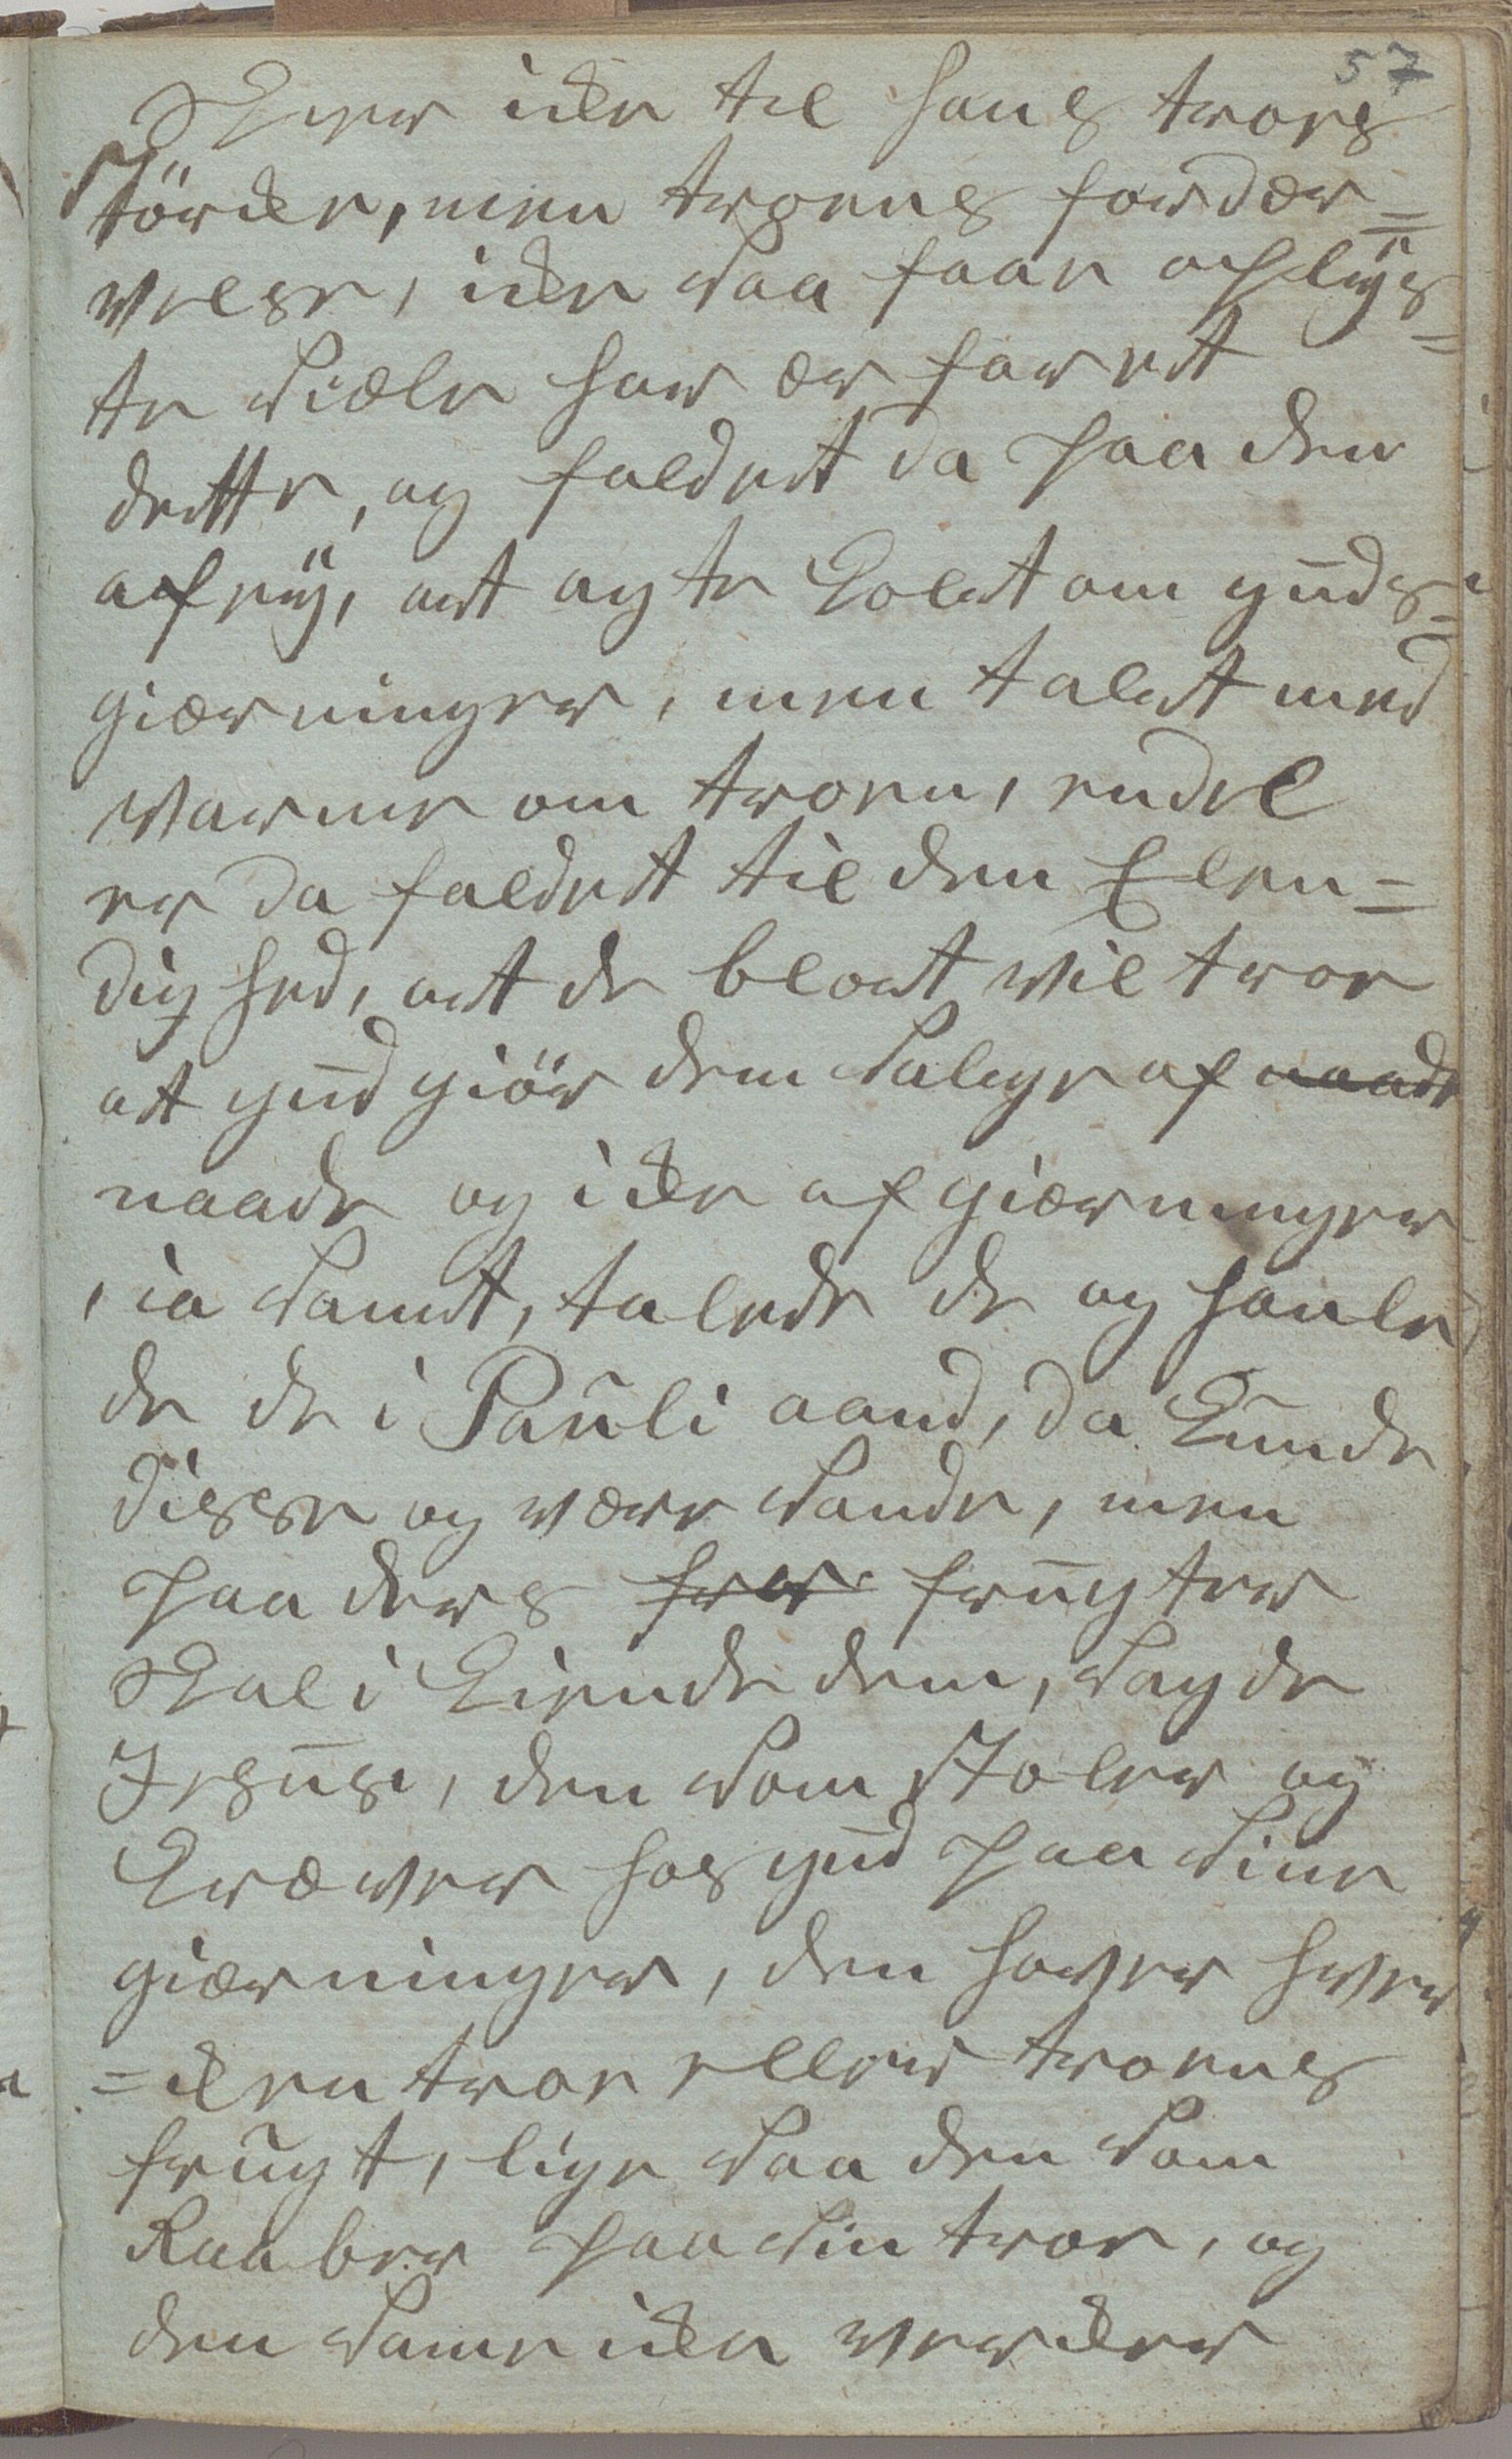 57
Skeer icke til hans troes
störcke, men troens fordær=
velse, icke saa faae oplÿs=
te Siæle har ær faret
dette, og faldet da paa den
afvej, at agte Kolt om guds=
giærninger, men talet med
varme om troen, endel
er da faldett til den Elen=
dighed, at de blodt vil troe
att gud giör dem salige af naade
naade og icke af giærninger
, ia sandt, talede de og hanle
de de i Pauli aand, da Kunde
disse og være sande, men
paa deres frer frugter
Skal i Kiende dem, sagde
Jesus, den som stoler og
Kræver hos gud paa sine
giærninger, den haver hver
=cken troe eller troens
frugt, lige saa den som
Raaber paa sin troe, og
den samme icke vercker